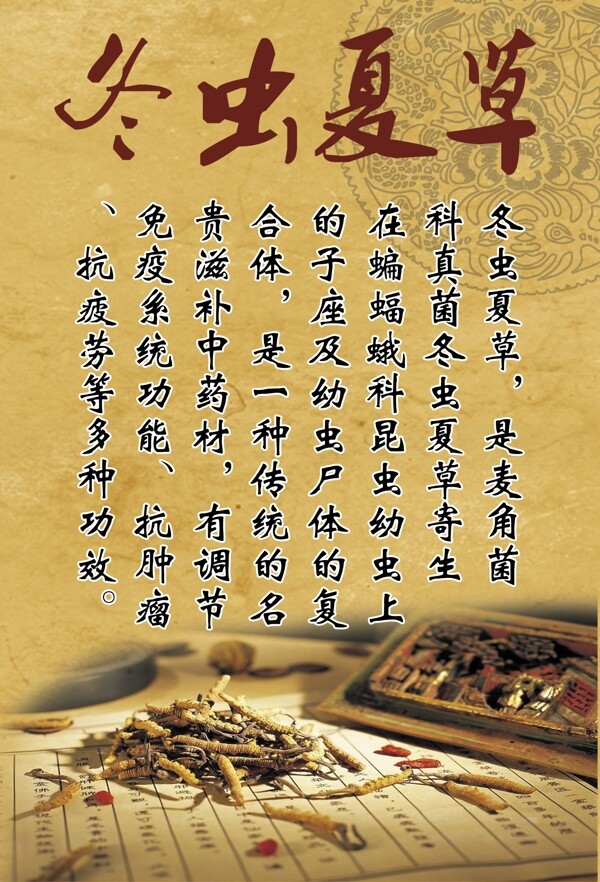 冬虫夏草
冬虫夏草，是麦角菌
科真菌冬虫夏草寄生
在蝙蝠蛾科昆虫幼虫上
的子座及幼虫尸体的复
合体，是一种传统的名
贵滋补中药材，有调节
免疫系统功能、抗肿瘤
、抗疲劳等多种功效。